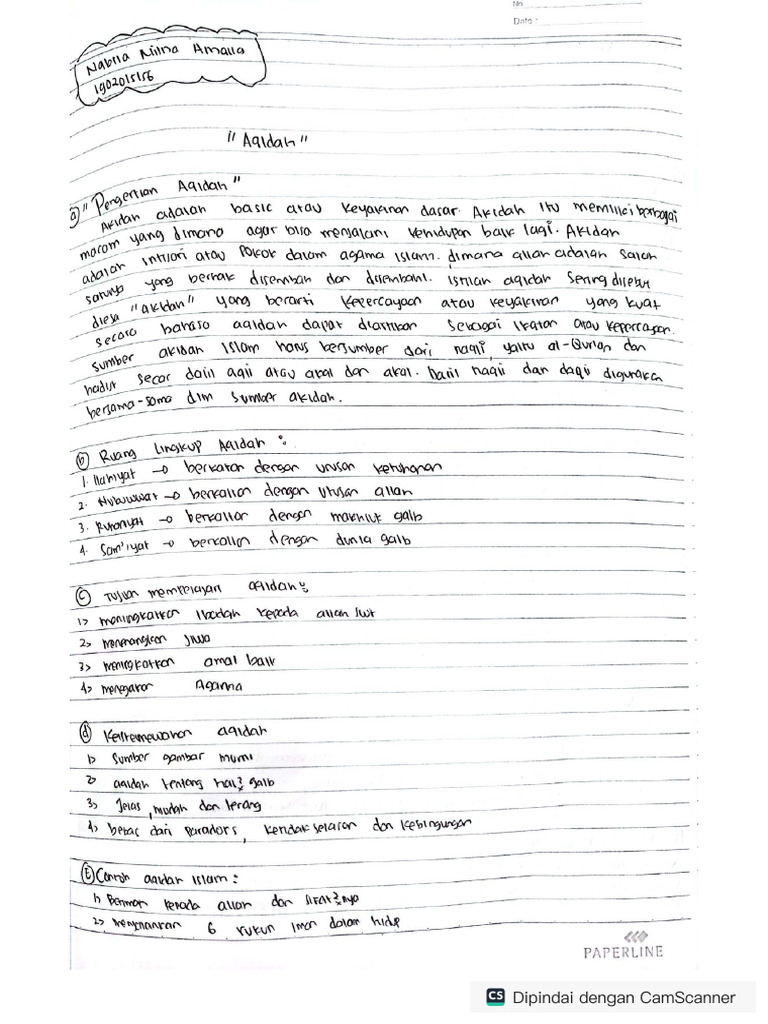 No
Date :
Nabila Nilna Amalia
1902015156
"Aqidah"
a) "Pengertian Aqidah"
Akidah adalah basic atau keyakinan dasar. Akidah itu memiliki berbagai
macam yang dimana agar bisa menjalani kehidupan baik lagi. Akidah
adalah intisari atau pokok dalam agama islam. dimana allah adalah salah
satunya yang berhak disembah dan disembahi. istilah aqidah sering disebut
"akidah" yang berarti kepercayaan atau keyakinan yang kuat
secara bahasa aqidah dapat diartikan sebagai ikatan atau kepercayaan.
sumber akidah islam harus bersumber dari naqli, yaitu al-Qur'an dan
hadist secar dalil aqli atau akal dan akal. Dalil naqli dan daqli digunakan
bersama-sama dlm sumber akidah.
b) Ruang lingkup Aqidah :
1. Ilahiyat → berkaitan dengan urusan ketuhanan
2. Nubuwwat → berkaitan dengan utusan allah
3. Ruhaniyat → berkaitan dengan makhluk gaib
4. Sam'iyat → berkaitan dengan dunia gaib
c) Tujuan mempelajari aqidah :
1> meningkatkan Ibadah kepada allah swt
2> menenangkan jiwa
3> meningkatkan amal baik
4> menegakan Agama
d) Keistemewahan aqidah
1> Sumber gambar murni
2> aqidah tentang hal2 gaib
3> Jelas, mudah dan terang
4> bebas dari paradoks, kendakselaran dan kebingungan
E) Contoh aqidah islam :
1> Beriman kepada allah dan sifat2nya
2> 6 rukun iman dalam hidup
PAPERLINE
CS Dipindai dengan CamScanner